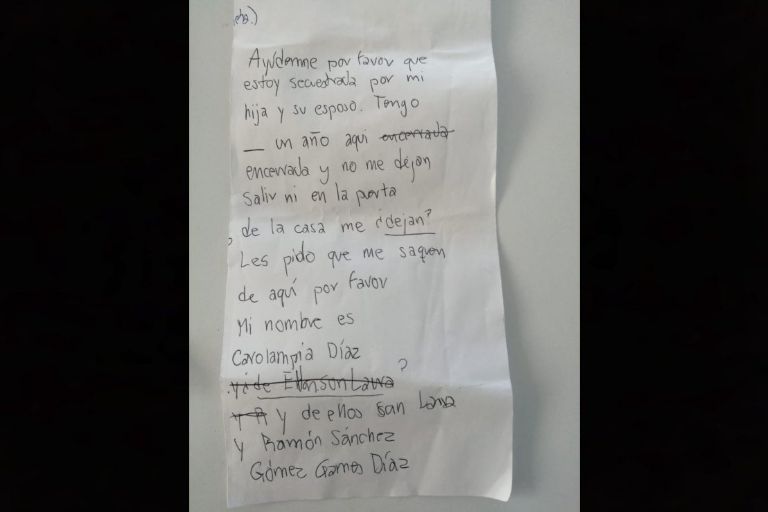 Ayúdenme por favor que
estoy secuestrada por mi
hija y su esposo. Tengo
__ un año aqui encerrada
encerrada y no me dejan
Salir ni en la puerta
de la casa me ¿dejan?
Les pido que me saquen
de aquí por favor
Mi nombre es
Carolampia Díaz
?
y de ellos san
y Ramón Sánchez
Gómez Díaz